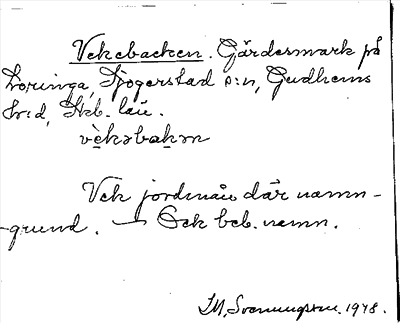 Vekebacken. Gärdesmark på
Toringa, Sjogerstad s:n, Gudhems
hr:d, Skb. län.
vèkəbakən
Vek jordmån där namn-
-grund. → Ock beb. namn.
I.M. Svenungsson. 1948.